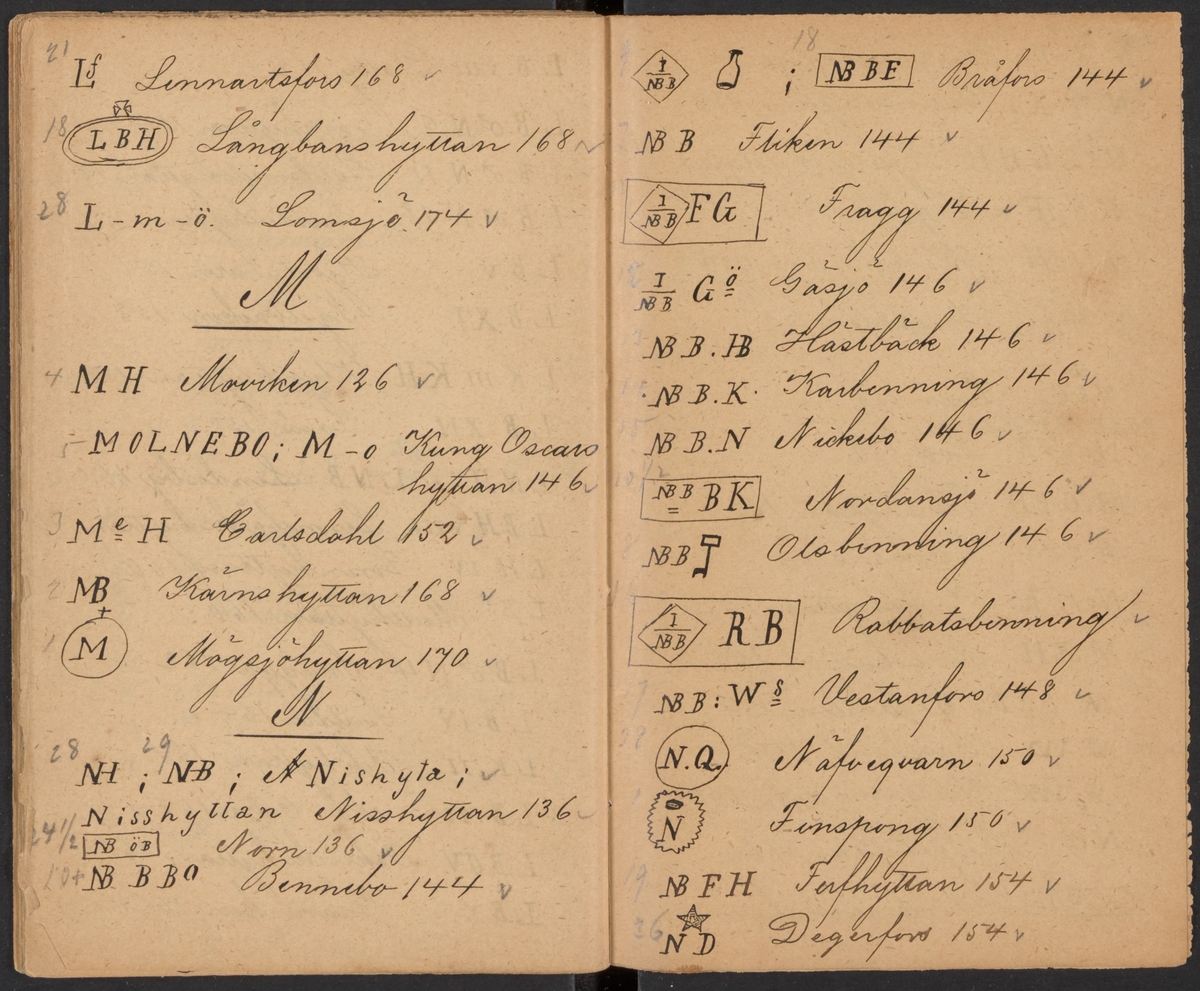 21
Lf Lennartsfors 168 ✓
18 LBH Långbanshyttan 168 ✓
28 L-m-ö. Lomsjö 174 ✓
M
4 M H Moviken 126 ✓
5 MOLNEBO; M-o Kung Oscars
hyttan 146 ✓
3 M e H Carlsdahl 152 ✓
2 MB Kärnshyttan 168 ✓
1 M Mögsjöhyttan 170 ✓
N
28 29
NH ; NB ; N Nishyta ; ✓
Nisshyttan Nisshyttan 136 ✓
24 1/2 NB ÖB Norn 136 ✓
10+ NB B B o Bennebo 144 ✓
18
I NB B ; NB B E Bråfors 144 ✓
NB B Fliken 144 ✓
I NB B F G Fragg 144 ✓
I NB B G ö Gäsjö 146 ✓
NB B. HB Hästbäck 146 ✓
NB B. K. Karbenning 146 ✓
NB B. N Nickebo 146 ✓
NB B B K Nordansjö 146 ✓
NB B Olsbenning 146 ✓
I NB B R B Rabbatsbenning ✓
NB B: W s Vestanfors 148 ✓
N.Q. Näfveqvarn 150 ✓
N Finspong 150 ✓
NB F H Ferfhyttan 154 ✓
N D Degerfors 154 ✓